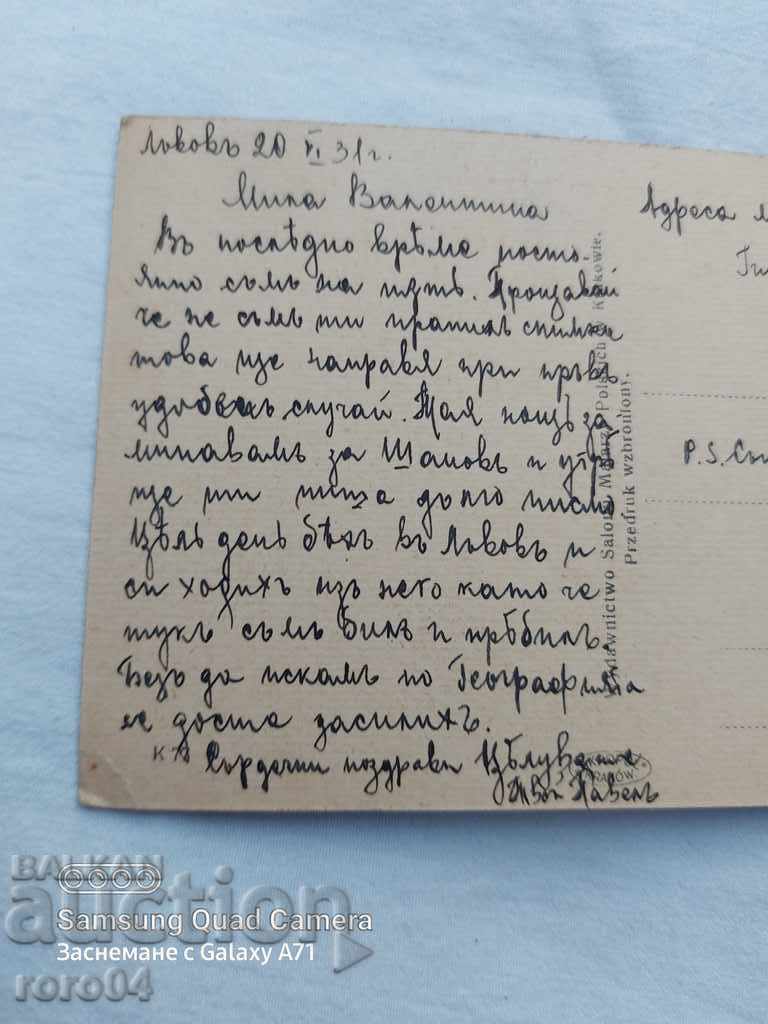 Лововъ 20 VI 31 г.
Мила Валентина
Въ последно врѣме посто-
янно съмъ на пѫть. Прощавай
че не съмъ ти пратилъ снимки
това ще направя при пръвъ
удобенъ случай. Тая нощь за
минавамъ за и утре
ще ти пиша дълго писмо.
Цѣлъ день бѣхъ въ Лововъ и
си ходихъ изъ него като че
тукъ съмъ билъ и прѣбилъ.
Безъ да искамъ по География
се доста засилихъ.
Сърдечни поздрави Цѣлувка
Твой Павелъ
Адреса
P.S.
Wydawnictwo Salonu Malarzy Polskich w Krakowie.
Przedruk wzbroniony.
KRAKÓW
BALKAN
auction
roro04
Samsung Quad Camera
Заснемане с Galaxy A71